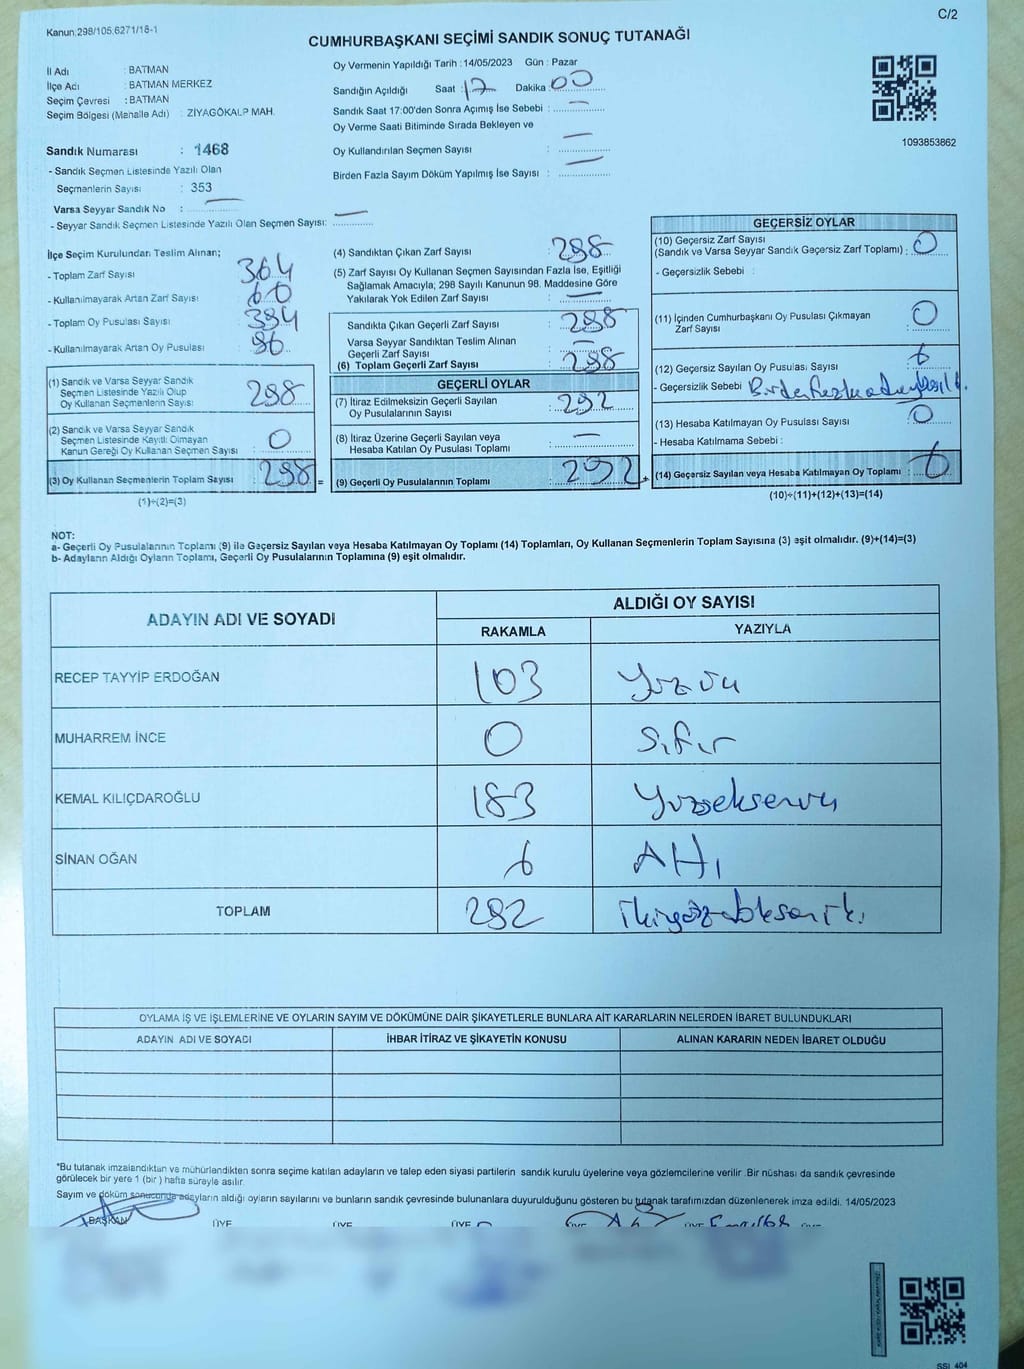 C/2
Kanun.298/105,6271/18-1
CUMHURBAŞKANI SEÇİMİ SANDIK SONUÇ TUTANAĞI
İl Adı : BATMAN
İlçe Adı : BATMAN MERKEZ
Seçim Çevresi : BATMAN
Seçim Bölgesi (Mahalle Adı) : ZİYAGÖKALP MAH.
Sandık Numarası : 1468
- Sandık Seçmen Listesinde Yazılı Olan
Seçmenlerin Sayısı : 353
Varsa Seyyar Sandık No :
- Seyyar Sandık Seçmen Listesinde Yazılı Olan Seçmen Sayısı:
Oy Vermenin Yapıldığı Tarih : 14/05/2023 Gün : Pazar
Sandığın Açıldığı Saat : 17 Dakika : 00
Sandık Saat 17:00'den Sonra Açımış İse Sebebi :
Oy Verme Saati Bitiminde Sırada Bekleyen ve
Oy Kullandırılan Seçmen Sayısı :
Birden Fazla Sayım Döküm Yapılmış İse Sayısı :
1093853862
İlçe Seçim Kurulundan Teslim Alınan;
- Toplam Zarf Sayısı 364
- Kullanılmayarak Artan Zarf Sayısı 60
- Toplam Oy Pusulası Sayısı 394
- Kullanılmayarak Artan Oy Pusulası : 96
(1) Sandık ve Varsa Seyyar Sandık
Seçmen Listesinde Yazılı Olup
Oy Kullanan Seçmenlerin Sayısı : 298
(2) Sandık ve Varsa Seyyar Sandık
Seçmen Listesinde Kayıtlı Olmayan
Kanun Gereği Oy Kullanan Seçmen Sayısı : 0
(3) Oy Kullanan Seçmenlerin Toplam Sayısı : 298 =
(1)+(2)=(3)
(4) Sandıktan Çıkan Zarf Sayısı : 298
(5) Zarf Sayısı Oy Kullanan Seçmen Sayısından Fazla İse, Eşitliği
Sağlamak Amacıyla; 298 Sayılı Kanunun 98. Maddesine Göre
Yakılarak Yok Edilen Zarf Sayısı :
Sandıkta Çıkan Geçerli Zarf Sayısı : 298
Varsa Seyyar Sandıktan Teslim Alınan
Geçerli Zarf Sayısı :
(6) Toplam Geçerli Zarf Sayısı : 298
GEÇERLİ OYLAR
(7) İtiraz Edilmeksizin Geçerli Sayılan
Oy Pusulalarının Sayısı : 292
(8) İtiraz Üzerine Geçerli Sayılan veya
Hesaba Katılan Oy Pusulası Toplamı :
(9) Geçerli Oy Pusulalarının Toplamı : 292 +
GEÇERSİZ OYLAR
(10) Geçersiz Zarf Sayısı
(Sandık ve Varsa Seyyar Sandık Geçersiz Zarf Toplamı) : 0
- Geçersizlik Sebebi :
(11) İçinden Cumhurbaşkanı Oy Pusulası Çıkmayan
Zarf Sayısı : 0
(12) Geçersiz Sayılan Oy Pusulası Sayısı : 6
- Geçersizlik Sebebi :
(13) Hesaba Katılmayan Oy Pusulası Sayısı : 0
- Hesaba Katılmama Sebebi :
(14) Geçersiz Sayılan veya Hesaba Katılmayan Oy Toplamı : 6
(10)+(11)+(12)+(13)=(14)
NOT:
a- Geçerli Oy Pusulalarının Toplamı (9) ile Geçersiz Sayılan veya Hesaba Katılmayan Oy Toplamı (14) Toplamları, Oy Kullanan Seçmenlerin Toplam Sayısına (3) eşit olmalıdır. (9)+(14)=(3)
b- Adayların Aldığı Oyların Toplamı, Geçerli Oy Pusulalarının Toplamına (9) eşit olmalıdır.
ADAYIN ADI VE SOYADI
ALDIĞI OY SAYISI
RAKAMLA YAZIYLA
RECEP TAYYİP ERDOĞAN 103 Yüzüü
MUHARREM İNCE 0 Sıfır
KEMAL KILIÇDAROĞLU 183 Yüzseksenüü
SİNAN OĞAN 6 Altı
TOPLAM 292
OYLAMA İŞ VE İŞLEMLERİNE VE OYLARIN SAYIM VE DÖKÜMÜNE DAİR ŞİKAYETLERLE BUNLARA AİT KARARLARIN NELERDEN İBARET BULUNDUKLARI
ADAYIN ADI VE SOYADI İHBAR İTİRAZ VE ŞİKAYETİN KONUSU ALINAN KARARIN NEDEN İBARET OLDUĞU
*Bu tutanak imzalandıktan ve mühürlendikten sonra seçime katılan adayların ve talep eden siyasi partilerin sandık kurulu üyelerine veya gözlemcilerine verilir .Bir nüshası da sandık çevresinde
görülecek bir yere 1 (bir ) hafta süreyle asılır.
Sayım ve döküm sonucunda adayların aldığı oyların sayılarını ve bunların sandık çevresinde bulunanlara duyurulduğunu gösteren bu tutanak tarafımızdan düzenlenerek imza edildi. 14/05/2023
BAŞKAN ÜYE ÜYE ÜYE ÜYE ÜYE ÜYE